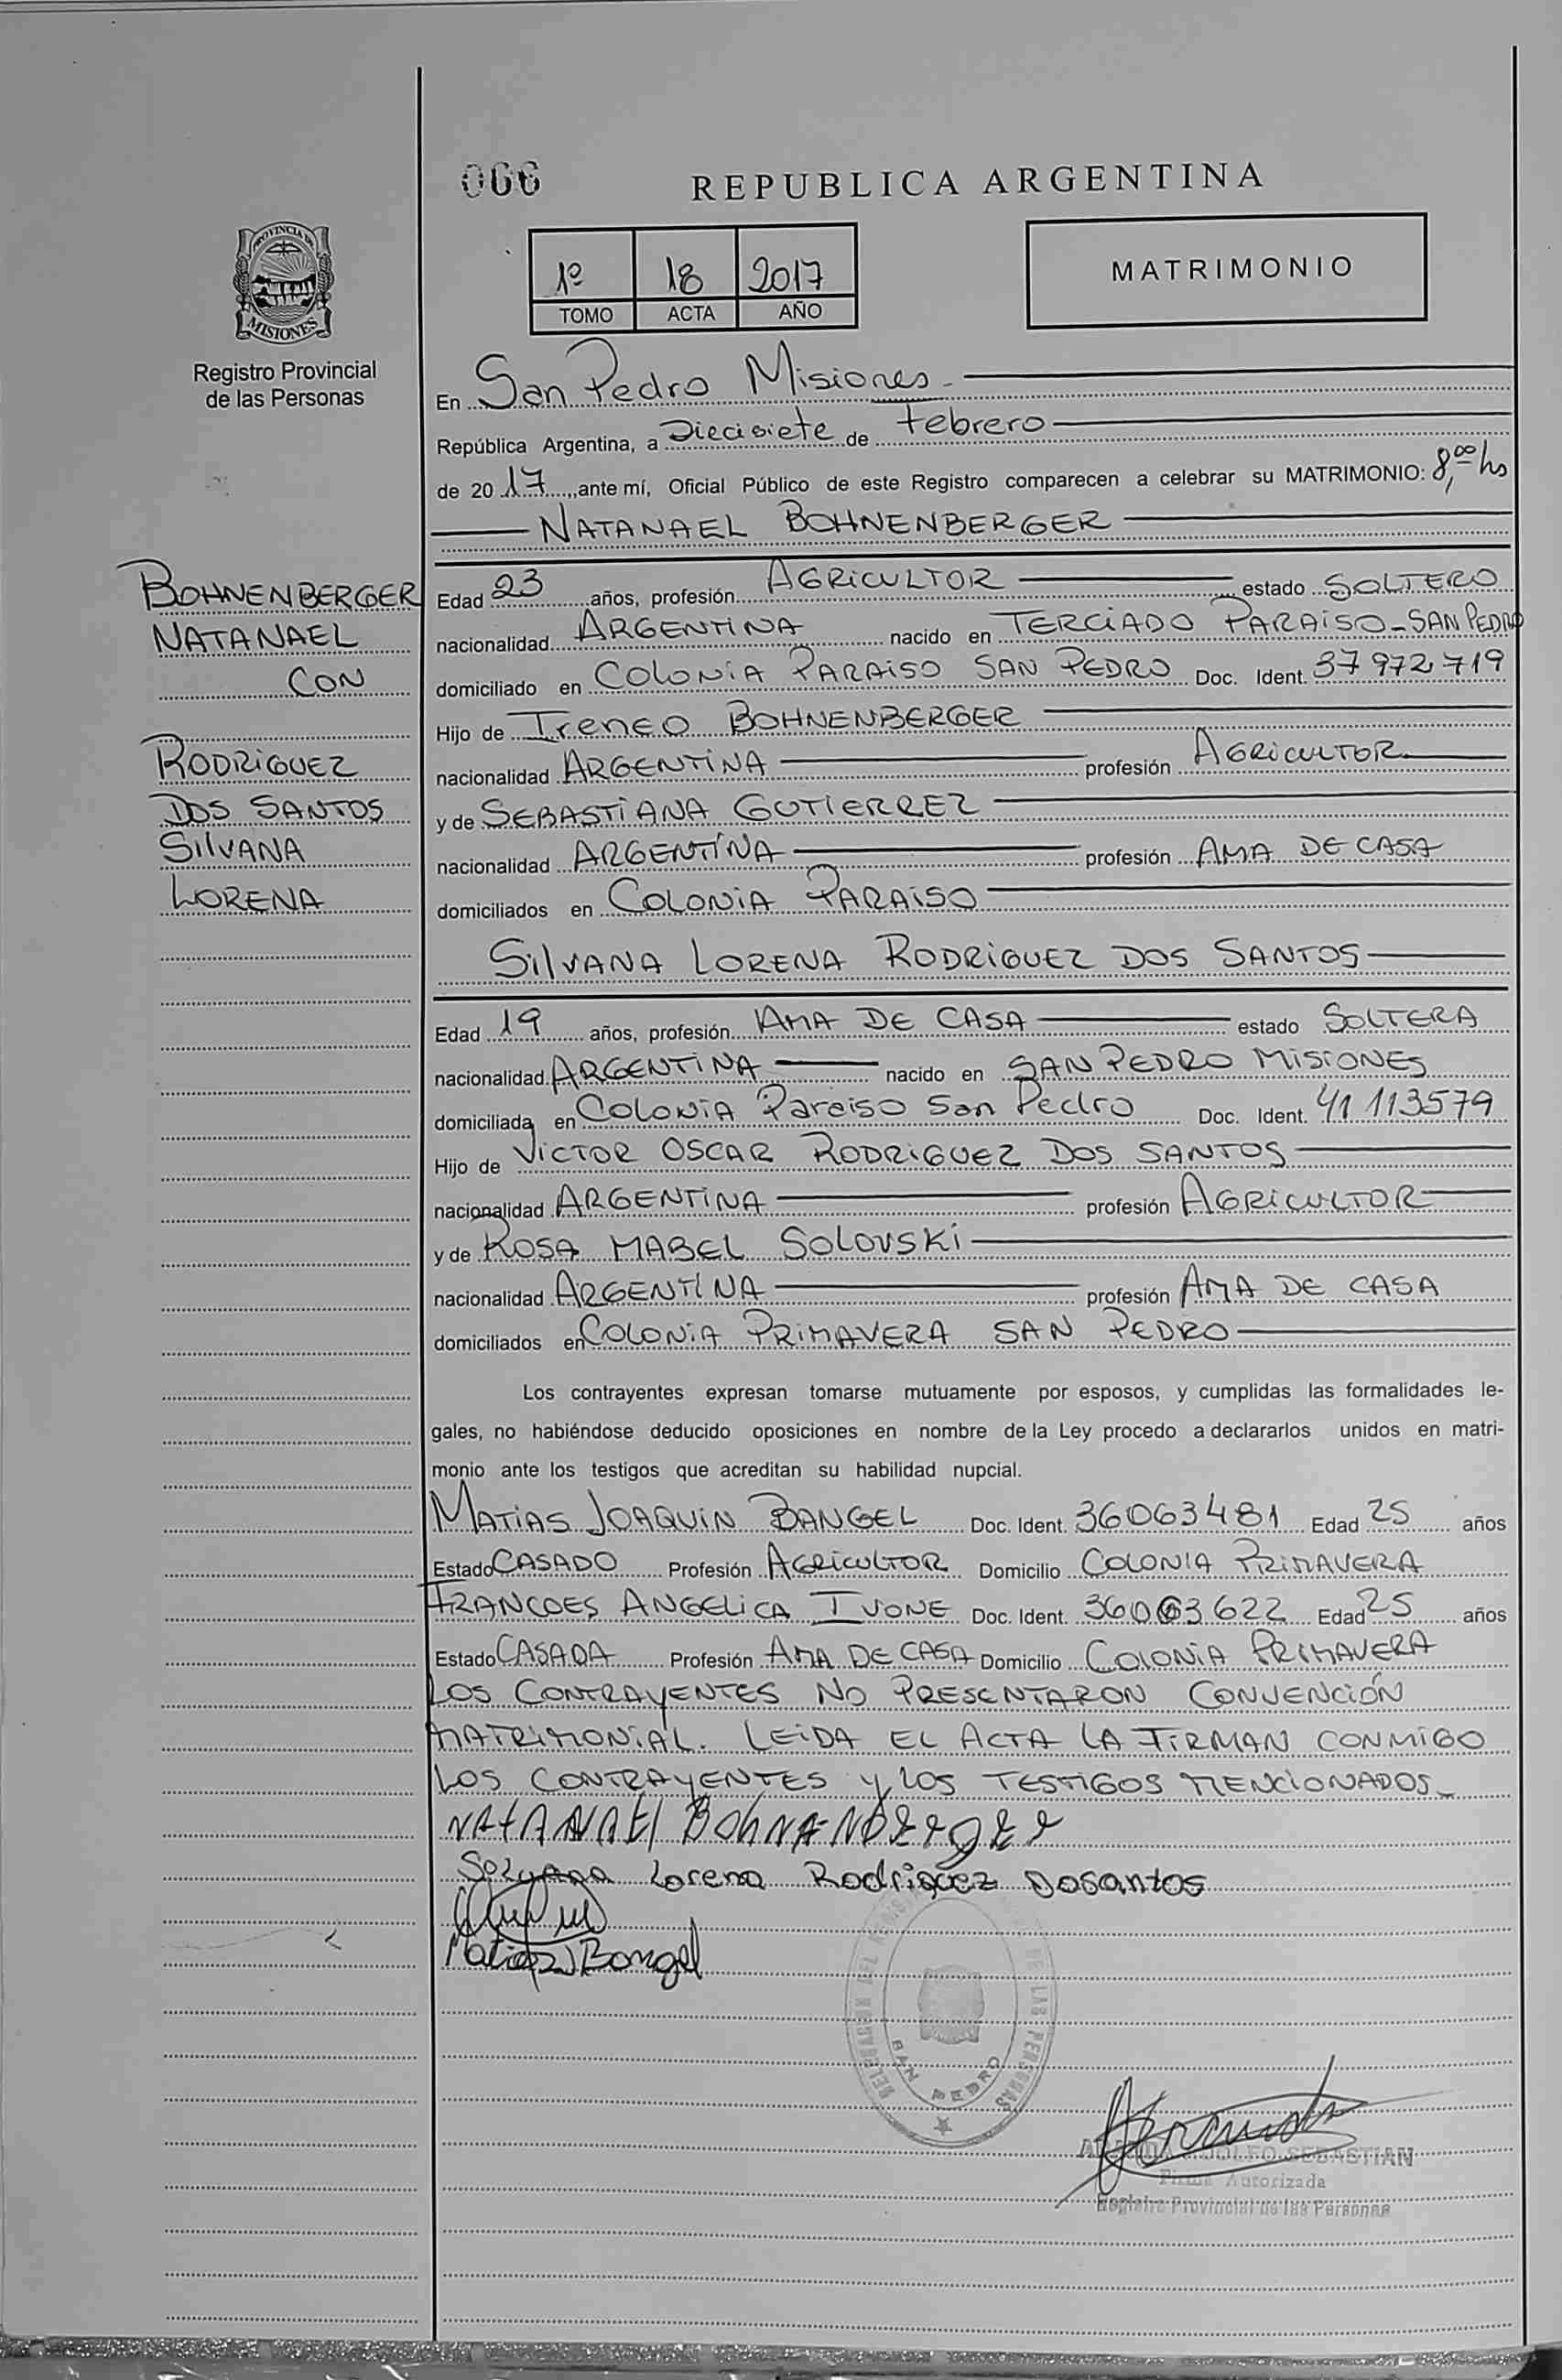 066
REPUBLICA ARGENTINA
PROVINCIA DE
MISIONES
Registro Provincial
de las Personas
1º 18 2017
TOMO ACTA AÑO
MATRIMONIO
En San Pedro Misiones.
República Argentina, a Diecisiete de Febrero
de 2017, ante mí, Oficial Público de este Registro comparecen a celebrar su MATRIMONIO: 8,00 hs
NATANAEL BOHNENBERGER
BOHNENBERGER
NATANAEL
CON
RODRIGUEZ
DOS SANTOS
SILVANA
LORENA
Edad 23 años, profesión AGRICULTOR estado SOLTERO
nacionalidad ARGENTINA nacido en TERCIADO PARAISO-SAN PEDRO
domiciliado en COLONIA PARAISO SAN PEDRO Doc. Ident. 37972719
Hijo de Ireneo BOHNENBERGER
nacionalidad ARGENTINA profesión AGRICULTOR
y de SEBASTIANA GUTIERREZ
nacionalidad ARGENTINA profesión AMA DE CASA
domiciliados en COLONIA PARAISO
SILVANA LORENA RODRIGUEZ DOS SANTOS
Edad 19 años, profesión AMA DE CASA estado SOLTERA
nacionalidad ARGENTINA nacido en SAN PEDRO MISIONES
domiciliada en Colonia Paraiso San Pedro Doc. Ident. 41113579
Hijo de VICTOR OSCAR RODRIGUEZ DOS SANTOS
nacionalidad ARGENTINA profesión AGRICULTOR
y de ROSA MABEL SOLOVSKI
nacionalidad ARGENTINA profesión AMA DE CASA
domiciliados en COLONIA PRIMAVERA SAN PEDRO
Los contrayentes expresan tomarse mutuamente por esposos, y cumplidas las formalidades le-
gales, no habiéndose deducido oposiciones en nombre de la Ley procedo a declararlos unidos en matri-
monio ante los testigos que acreditan su habilidad nupcial.
MATIAS JOAQUIN BANGEL Doc. Ident. 36063481 Edad 25 años
Estado CASADO Profesión AGRICULTOR Domicilio COLONIA PRIMAVERA
FRANCOES ANGELICA IVONE Doc. Ident. 36063622 Edad 25 años
Estado CASADA Profesión AMA DE CASA Domicilio COLONIA PRIMAVERA
LOS CONTRAYENTES NO PRESENTARON CONVENCIÓN
MATRIMONIAL. LEIDA EL ACTA LA FIRMAN CONMIGO
LOS CONTRAYENTES Y LOS TESTIGOS MENCIONADOS
NATANAEl
Lorena Rodriguez Dosantos
Matias Bangel
DELEGACION DEL DE LAS PERSONAS
SAN PEDRO
SEBASTIAN
Firma Autorizada
Registro Provincial de las Personas